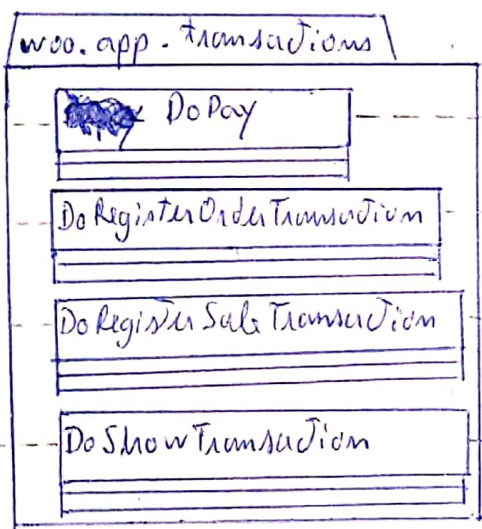 woo.app.transactions
DoPay
DoRegisterOrderTransaction
DoRegisterSaleTransaction
DoShowTransaction